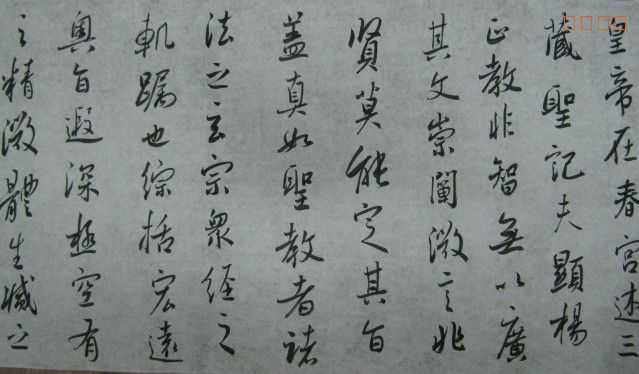 皇帝在春宮述三
藏聖記夫顯楊
正教非智無以廣
其文崇闡微言非
賢莫能定其旨
盖真如聖教者諸
法之玄宗衆經之
軌躅也綜括宏遠
奧旨遐深極空有
之精微體生滅之